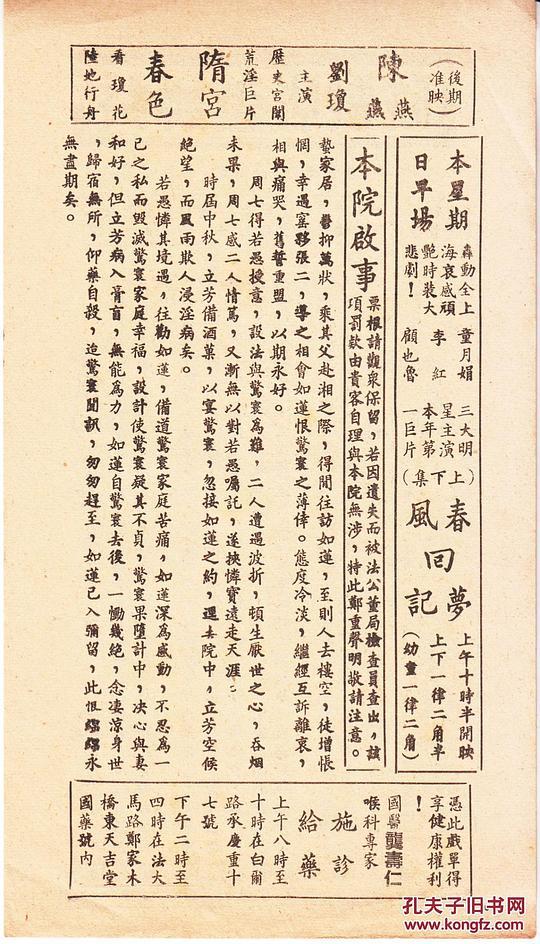 (後期
准映)
陳燕燕
劉瓊
主演
歷史宮闈
荒淫巨片
隋宮
春色
看瓊花
陸地行舟
本星期
日早場
轟動全上
海哀感頑
艷時裝大
悲劇!
童月娟
李紅
顧也魯
三大明
星主演
本年第
一巨片
(上下集)
春風回夢記
上午十時半開映
上下一律二角半
(幼童一律二角)
本院啟事
票根請觀衆保留,若因遺失而被法公董局檢查員查出,該
項罰欵由貴客自理與本院無涉,特此鄭重聲明敬請注意。
蟄家居,鬱抑萬狀,乘其父赴湘之際,得間往訪如蓮,至則人去樓空,徒增悵
惘,幸遇窰夥張二,導之相會如蓮恨驚寰之薄倖。態度冷淡,繼經互訴離衷,
相與痛哭,舊誓重盟,以期永好。
周七得若愚授意,設法與驚寰為難,二人遭遇波折,頓生厭世之心,吞烟
未果,周七感二人情篤,又漸無以對若愚囑託,遂挾憐寶遠走天涯;
時屆中秋,立芳備酒菓,以宴驚寰,忽接如蓮之約,逕去院中,立芳空候
絕望,而風雨欺人浸淫病矣。
若愚憐其境遇,往勸如蓮,備道驚寰家庭苦痛,如蓮深為感動,不忍為一
己之私而毀滅驚寰家庭幸福,設計使驚寰疑其不貞,驚寰果墮計中,決心與妻
和好,但立芳病入膏肓,無能為力,如蓮自驚寰去後,一慟幾絕,念凄涼身世
,歸宿無所,仰藥自殺,迨驚寰聞訊,匆匆趕至,如蓮已入彌留,此恨緜緜永
無盡期矣。
憑此戲單得
享健康權利
!
國醫龔壽仁
喉科專家
施診
給藥
上午八時至
十時在白爾
路承慶里十
七號
下午二時至
四時在法大
馬路鄭家木
橋東天吉堂
國藥號內
孔夫子旧书网
www.kongfz.com